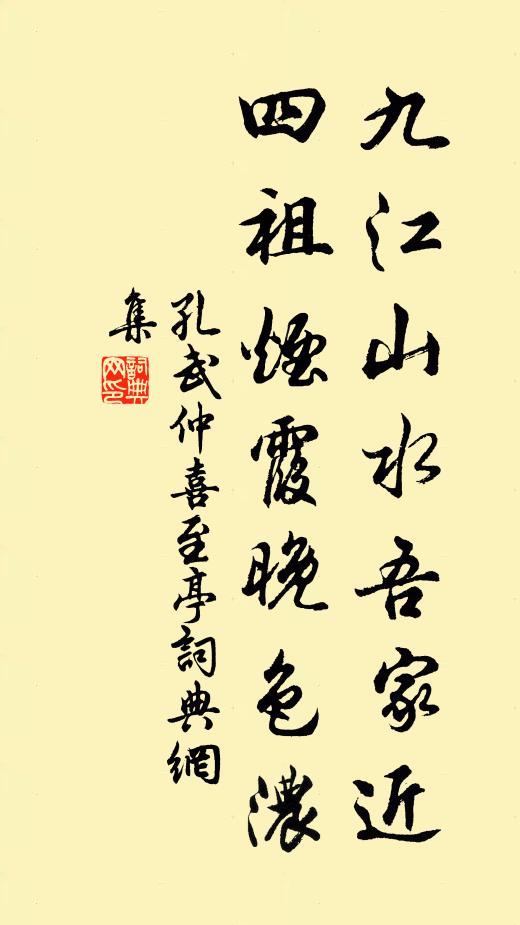 九江山水吾家近
四祖煙霞晚色濃
孔武仲喜至亭詞典網
集
詞典網印